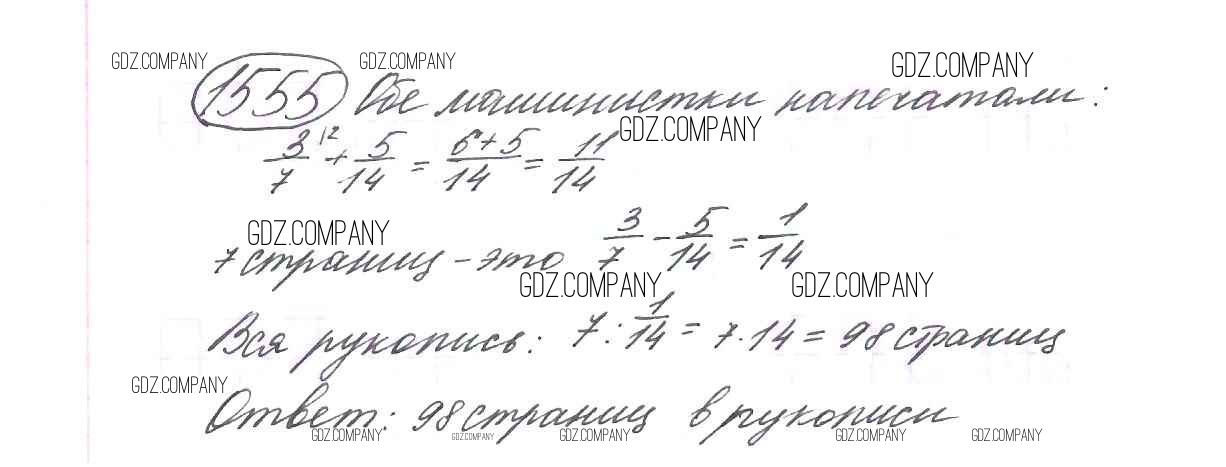 GDZ.COMPANY GDZ.COMPANY GDZ.COMPANY
1555 Обе машинистки напечатали:
GDZ.COMPANY
3/7 ¹² + 5/14 = 6+5/14 = 11/14
GDZ.COMPANY
7 страниц - это 3/7 - 5/14 = 1/14
GDZ.COMPANY GDZ.COMPANY
Вся рукопись: 7 : 1/14 = 7 · 14 = 98 страниц
GDZ.COMPANY
Ответ: 98 страниц в рукописи
GDZ.COMPANY GDZ.COMPANY GDZ.COMPANY GDZ.COMPANY GDZ.COMPANY